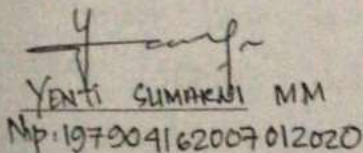 YENTI SUMARNI MM
Nip. 197904162007012020